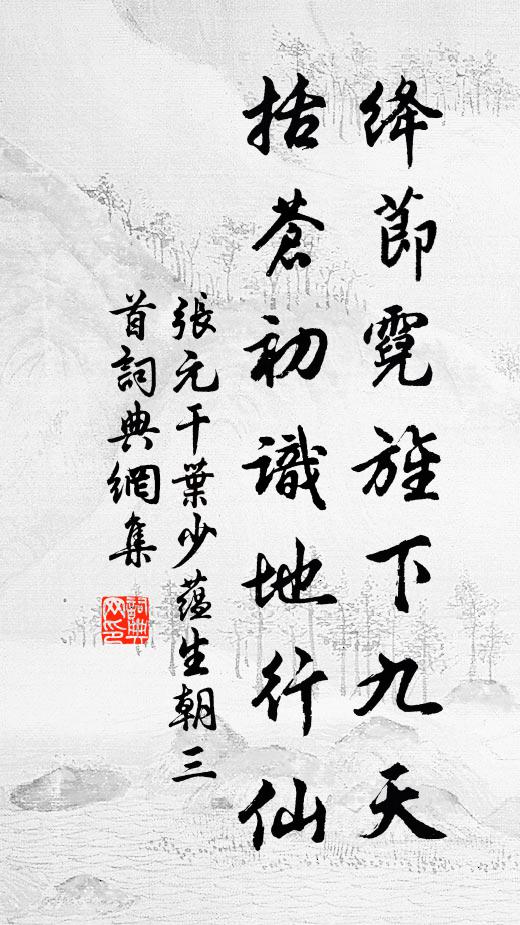 絳節霓旌下九天
括蒼初識地行仙
張元干葉少蕴生朝三
首詞典網集
詞典网印